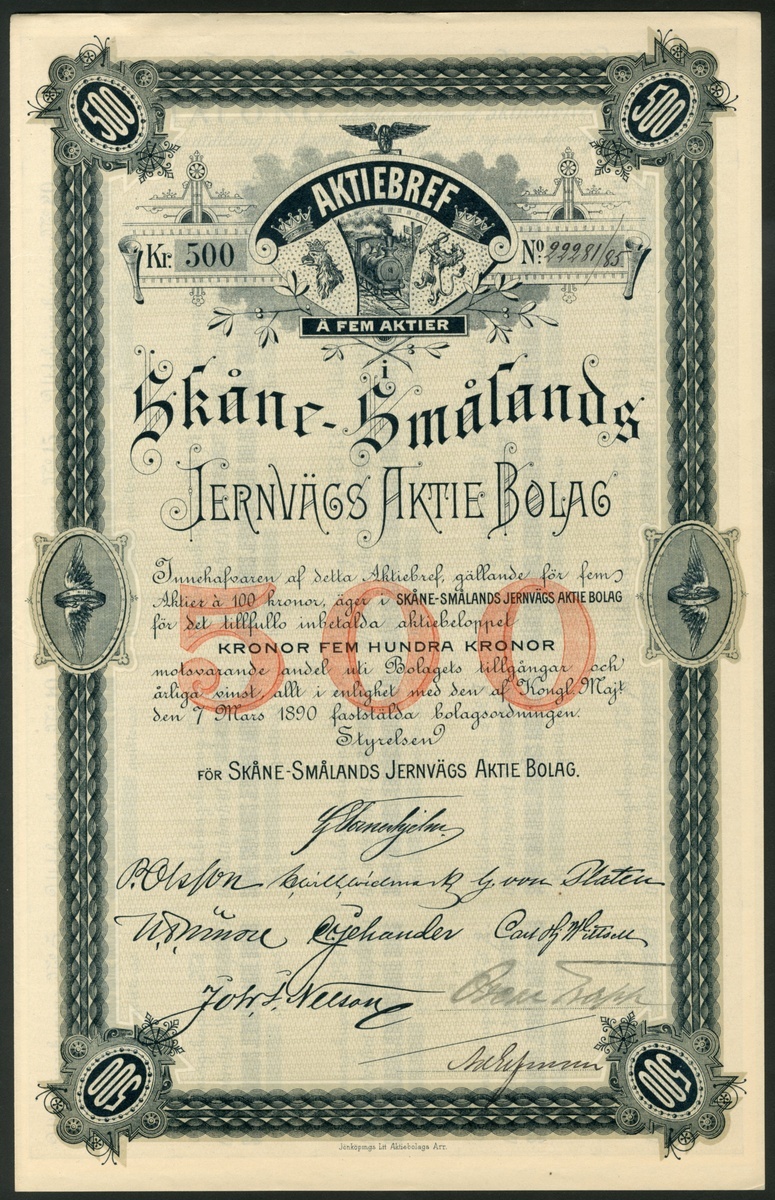 500
500
AKTIEBREF
Kr. 500
No: 22281/85
À FEM AKTIER
i
Skåne-Smålands
JERNVÄGS AKTIE BOLAG
500
Innehafvaren af detta Aktiebref, gällande för fem
Aktier à 100 kronor, äger i SKÅNE-SMÅLANDS JERNVÄGS AKTIE BOLAG
för det tillfullo inbetalda aktiebeloppet
KRONOR FEM HUNDRA KRONOR
motsvarande andel uti Bolagets tillgångar och
årliga vinst, allt i enlighet med den af Kongl. Majt
den 7 Mars 1890 fastställda bolagsordningen.
Styrelsen
FÖR SKÅNE-SMÅLANDS JERNVÄGS AKTIE BOLAG.
G Tornerhjelm.
P. Olsson Carl Widmark G. von Platen
Gehander Carl
Joh. Nelson
500
500
Jönköpings Lit Aktiebolags Arr.